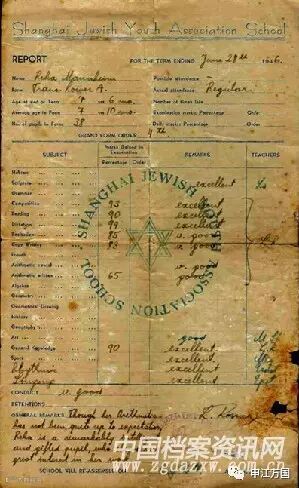 Shanghai Jewish Youth Association School
REPORT FOR THE TERM ENDING June 28th 1946.
Name Reha Mannheim Possible attendance
Form Trans. Lower A. Actual attendance Regular.
Age at end of Term 9 yrs 6 mos. Number of times late
Average age in Form 9 10 mos. Examination marks Percentage Order
No. of pupils in Form 38 Daily marks Percentage Order
GRAND TERM ORDER 4th
SUBJECT Percentage Order REMARKS TEACHERS
Hebrew
Scripture excellent
Grammar
Composition 95 excellent
Reading 90 excellent
Dictation 99 excellent
Recitation 85 v. good
Copy Writing 83 v. good
French
Arithmetic mental v. good
Arithmetic written 65 good
Algebra
Geometry
Geometrical Drawing
History
Geography
Art good
General Knowledge 90 excellent
Sport excellent
Rhythmic excellent
Singing excellent
SHANGHAI JEWISH YOUTH ASSOCIATION SCHOOL
CONDUCT v. good
DETENTIONS
GENERAL REMARKS Though her Arithmetic
has not been quite up to expectation,
Reha is a remarkably intelligent
and gifted pupil, who
great interest in her
SCHOOL WILL RE-ASSEMBLE ON
中国档案资讯网
www.zgdazxw.com.cn
申江万国